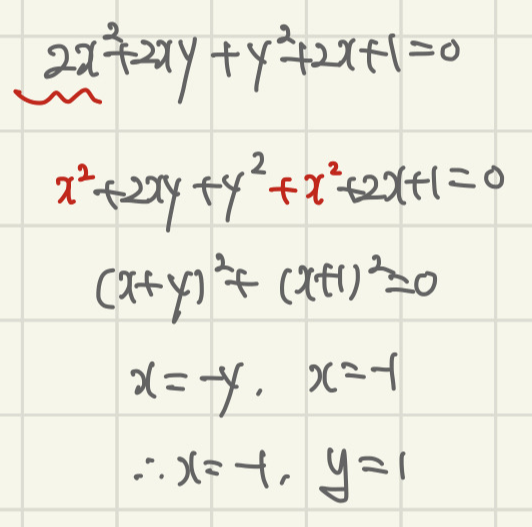 2x²+2xy+y²+2x+1=0
x²+2xy+y²+x²+2x+1=0
(x+y)²+(x+1)²=0
x=-y, x=-1
∴x=-1, y=1